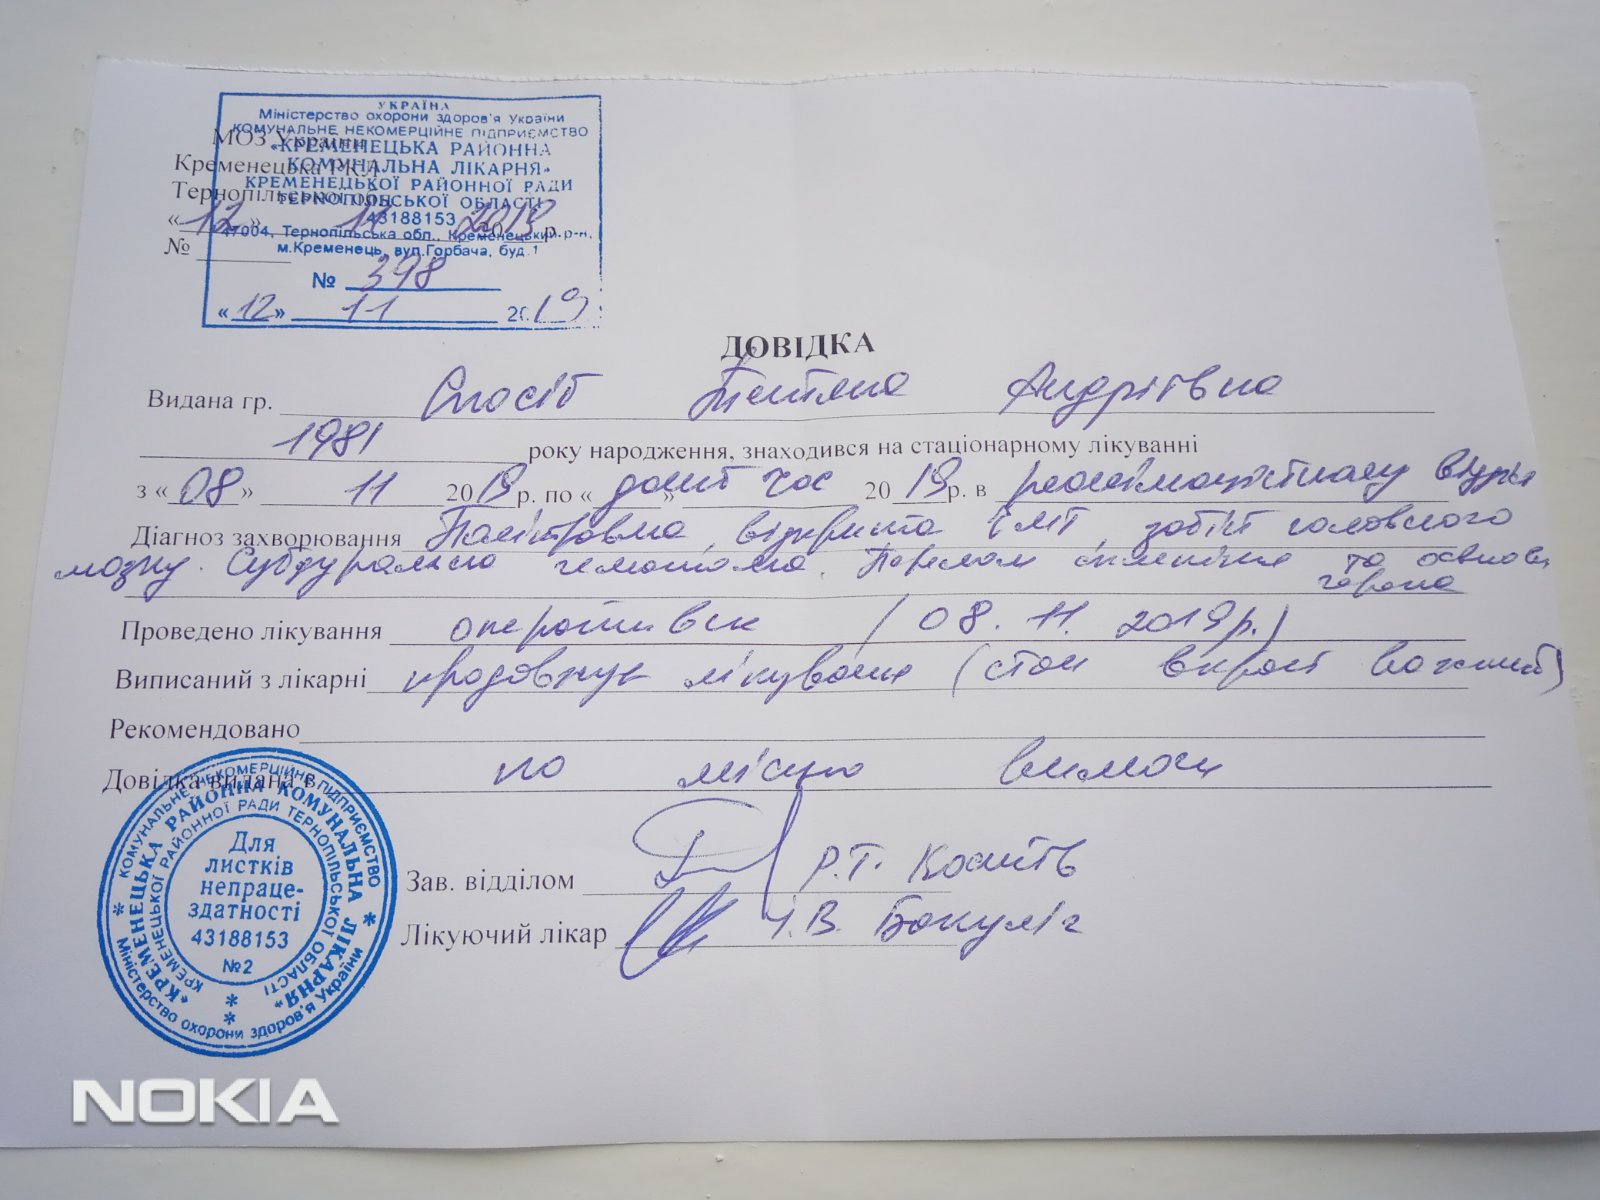 УКРАЇНА
Міністерство охорони здоров'я України
КОМУНАЛЬНЕ НЕКОМЕРЦІЙНЕ ПІДПРИЄМСТВО
«КРЕМЕНЕЦЬКА РАЙОННА
КОМУНАЛЬНА ЛІКАРНЯ»
КРЕМЕНЕЦЬКОЇ РАЙОННОЇ РАДИ
ТЕРНОПІЛЬСЬКОЇ ОБЛАСТІ
43188153
47004, Тернопільська обл., Кременецький р-н,
м.Кременець, вул.Горбача, буд.1
№ 398
«12» 11 2019
МОЗ України
Кременецька РКЛ
Тернопільської обл.
«12» 11 2019 р.
№
ДОВІДКА
Видана гр. Спосіб Тетяна Андріївна
1981 року народження, знаходився на стаціонарному лікуванні
з «08» 11 2019 р. по « даний час » 2019 р. в
Діагноз захворювання Політравма, відкрита ЧМТ, забій головного
мозку. Субдуральна гематома. Перелом склепіння та основи
черепа
Проведено лікування оперативне (08.11.2019р.)
Виписаний з лікарні продовжує лікування (стан вкрай важкий)
Рекомендовано
Довідка видана в по місцю вимоги
Зав. відділом Р.Т.
Лікуючий лікар
КОМУНАЛЬНЕ НЕКОМЕРЦІЙНЕ ПІДПРИЄМСТВО
«КРЕМЕНЕЦЬКА РАЙОННА КОМУНАЛЬНА ЛІКАРНЯ»
КРЕМЕНЕЦЬКОЇ РАЙОННОЇ РАДИ ТЕРНОПІЛЬСЬКОЇ ОБЛАСТІ
Міністерство охорони здоров'я України
Для
листків
непраце-
здатності
43188153
№2
NOKIA